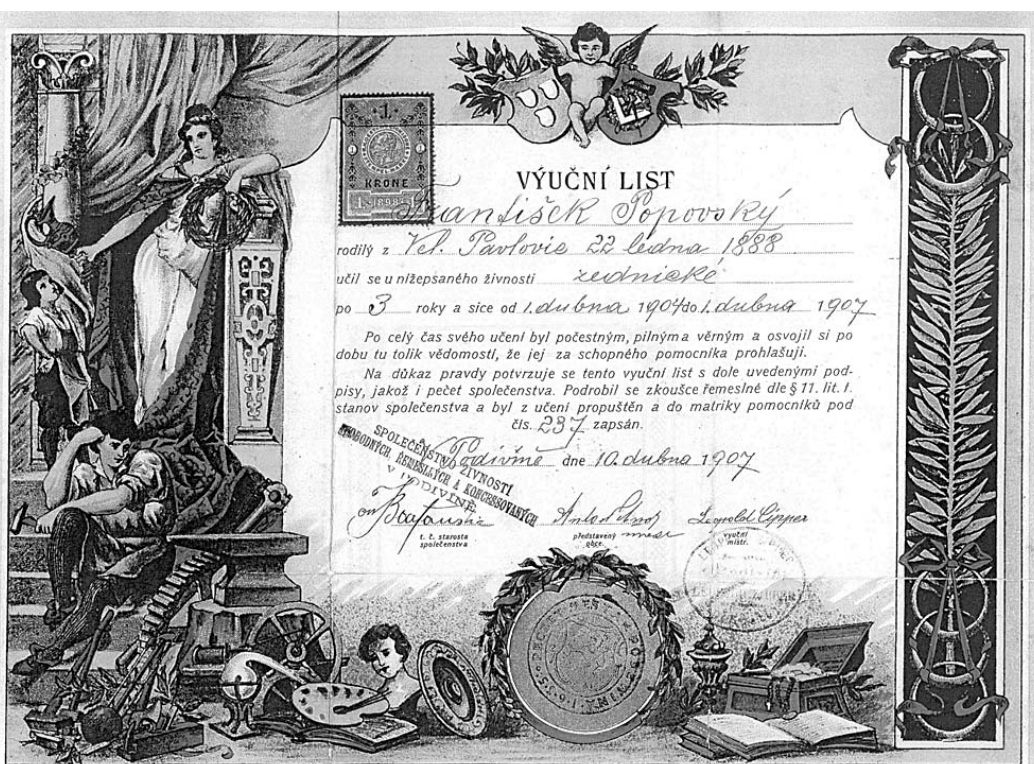 1
1 1
KRONE
1 1898 1
VÝUČNÍ LIST
František Popovský
rodilý z Vel. Pavlovic 22 ledna 1888
učil se u nížepsaného živnosti zednické
po 3 roky a sice od 1. dubna 1904 do 1. dubna 1907
Po celý čas svého učení byl počestným, pilným a věrným a osvojil si po
dobu tu tolik vědomostí, že jej za schopného pomocníka prohlašuji.
Na důkaz pravdy potvrzuje se tento vyuční list s dole uvedenými pod-
pisy, jakož i pečet společenstva. Podrobil se zkoušce řemeslné dle § 11. lit. l.
stanov společenstva a byl z učení propuštěn a do matriky pomocníků pod
čís. 237 zapsán.
V Podivíně dne 10. dubna 1907
SPOLEČENSTVO ŽIVNOSTÍ
SVOBODNÝCH ŘEMESLNÝCH A KONCESSOVANÝCH
V PODIVÍNĚ
Leopold Cipper
t. č. starosta
společenstva
představený
obce.
vyuční
mistr.